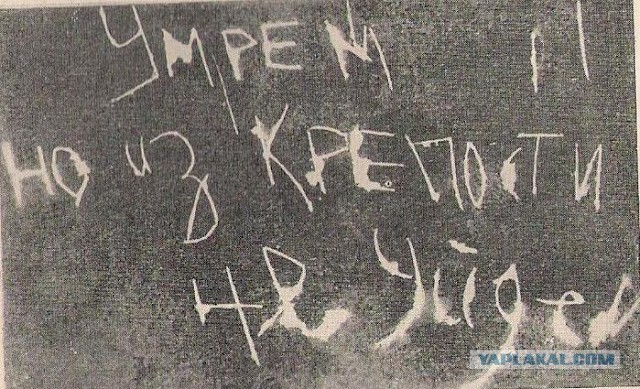 УМРЕМ
НО ИЗ КРЕПОСТИ
НЕ Уйдем
YAPLAKAL.COM